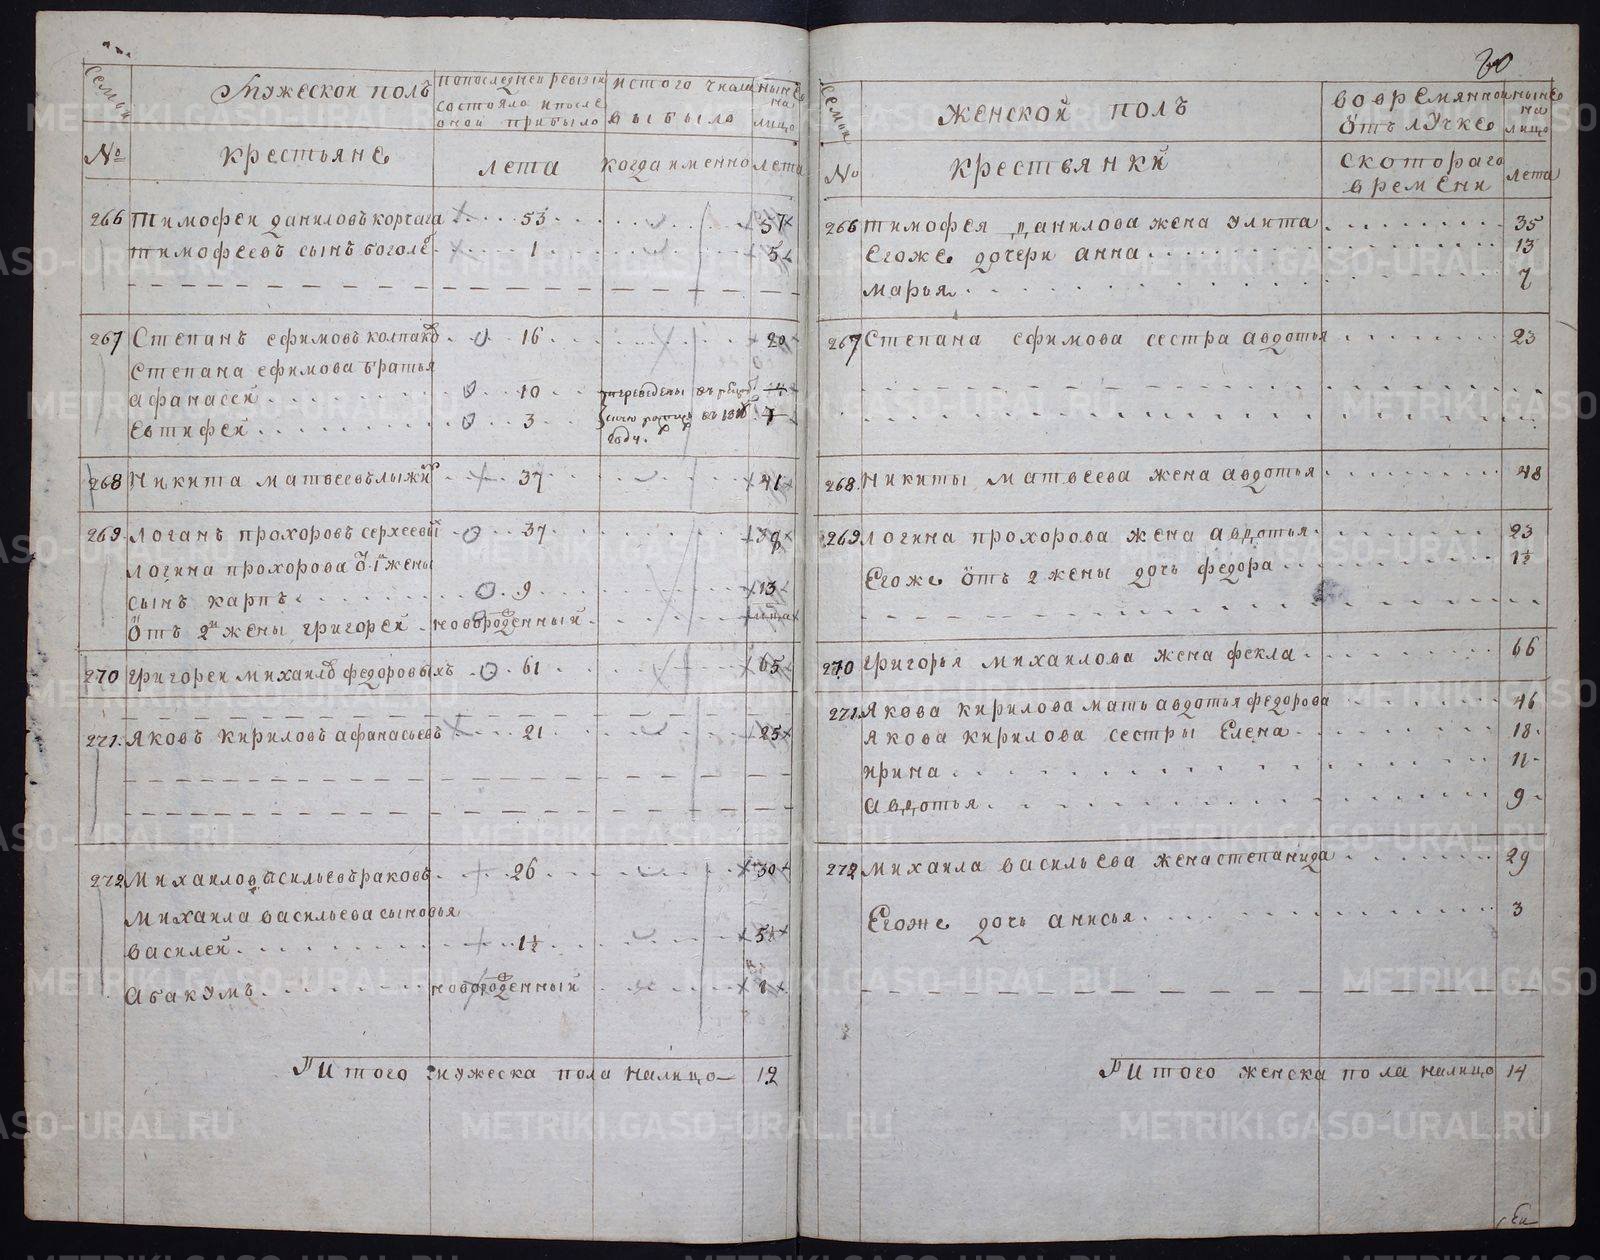 Семьи
Мужескои полъ
попоследнеи ревизи
состояло ипосле
оной прибыло
истого числа
выбыло
ныне
на
лицо
№
крестьяне
лета
когда именно
лета
266 тимофеи даниловъ корчага 53 57
тимофеевъ сынъ боголеб 1 5
267 Степанъ ефимовъ колпаков 16 20
Степана ефимова братья
афанасеи 10 переведены въ
Евтифей 3 7
году.
268 Никита матвеевъ лыжин 37 41
269 логанъ прохоровъ серхеевы 37
логина прохорова От 1й жены
сынъ карпъ 9 13
Отъ 2й жены григореи новорожденный
270 григореи михаилов федоровыхъ 61 65
271. Яковъ кириловъ афанасьевъ 21 25
272 Михаило васильевъ раковъ 26 30
Михаила васильева сыновья
василей 1½ 5½
Абакумъ новорожденный
Итого мужеска пола налицо 12
60
Семьи
Женской полъ
вовремянной
отълучке
ныне
на
лицо
№
крестьянки
скотораго
времени
лета
266 тимофея данилова жена улита 35
Егоже дочери анна 13
марья 7
267 Степана ефимова сестра авдотья 23
268. Никиты матвеева жена авдотья 48
269 логина прохорова жена авдотья 23
Егоже отъ 2 жены дочь федора 1½
270 григорья михаилова жена фекла 66
271. Якова кирилова мать авдотья федорова 46
Якова кирилова сестры Елена 18
ирина 11
авдотья 9
272 михаила васильева жена степанида 29
Егоже дочь анисья 3
Итого женска пола налицо 14
METRIKI.GASO-URAL.RU